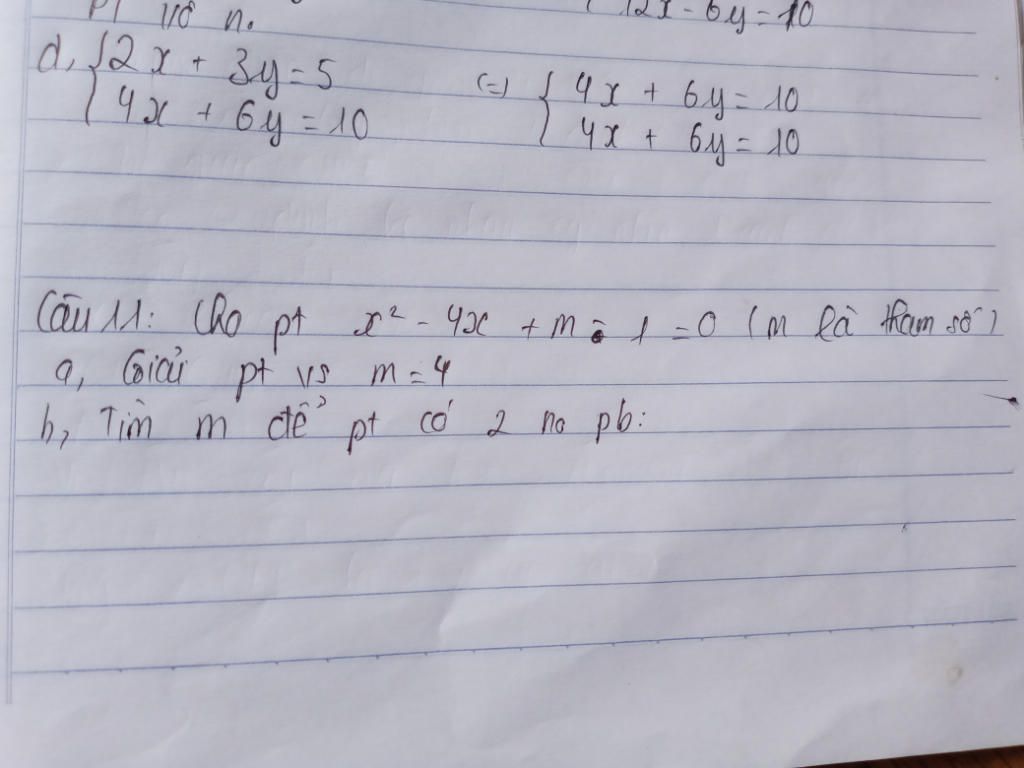 vô n.
12x - 6y = 10
d, { 2x + 3y = 5 (=) { 4x + 6y = 10
4x + 6y = 10 4x + 6y = 10
Câu 11: Cho pt x² - 4x + m - 1 = 0 (m là tham số)
a, Giải pt vs m = 4
b, Tìm m để pt có 2 no pb: